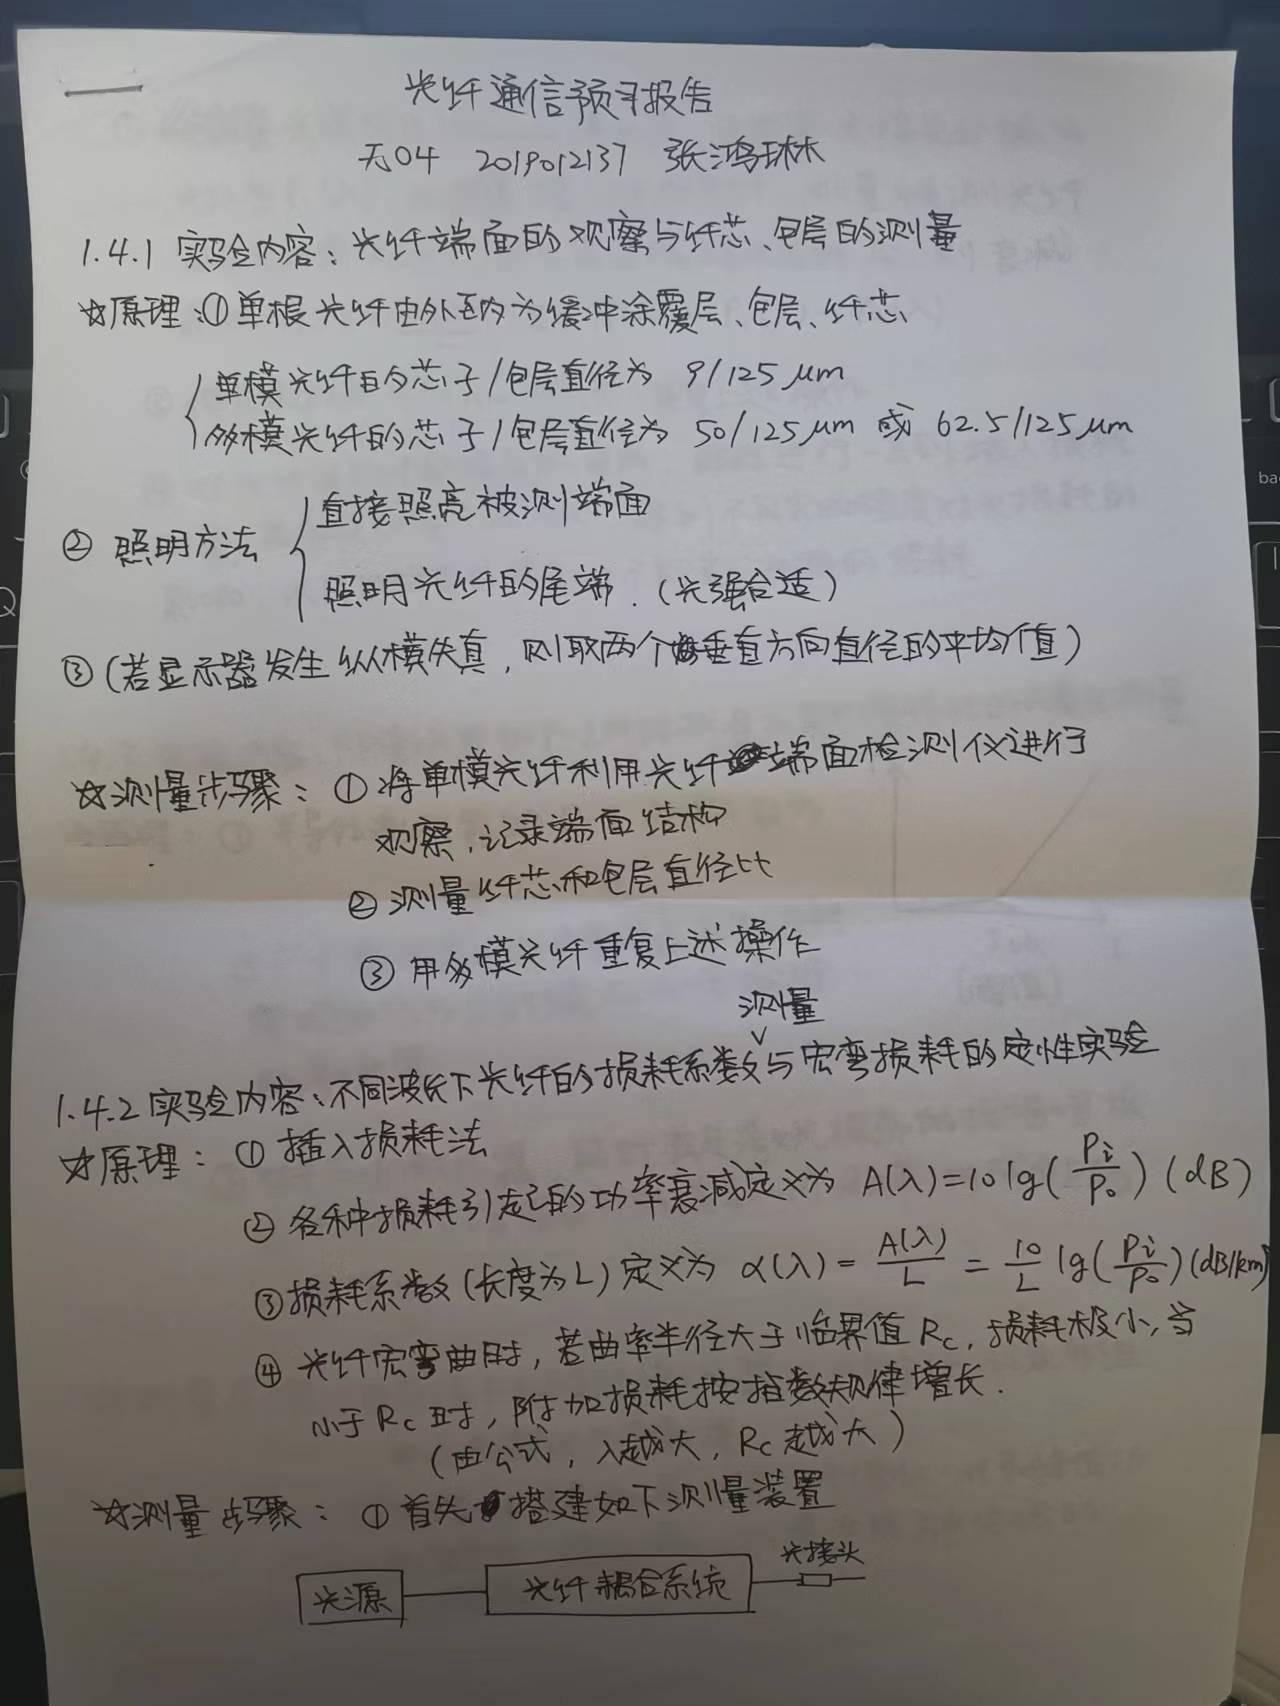 光纤通信预习报告
无04 2019012137 张鸿琳
1.4.1 实验内容：光纤端面的观察与纤芯、包层的测量
☆原理：①单根光纤由外至内为缓冲涂覆层、包层、纤芯
单模光纤的芯子/包层直径为 9/125 μm
多模光纤的芯子/包层直径为 50/125μm 或 62.5/125μm
② 照明方法
直接照亮被测端面
照明光纤的尾端.（光强合适）
③（若显示器发生纵横失真，则取两个垂直方向直径的平均值）
☆测量步骤：① 将单模光纤利用光纤端面检测仪进行
观察，记录端面结构
② 测量纤芯和包层直径比
③ 用多模光纤重复上述操作
测量
1.4.2 实验内容：不同波长下光纤的损耗系数与宏弯损耗的定性实验
☆原理：① 插入损耗法
② 各种损耗引起的功率衰减定义为 A(λ)=10lg(Pi/Po) (dB)
③损耗系数(长度为L)定义为 α(λ)=A(λ)/L=10/L lg(Pi/Po)(dB/km)
④ 光纤宏弯曲时，若曲率半径大于临界值Rc，损耗极小，当
小于Rc时，附加损耗按指数规律增长.
（由公式，λ越大，Rc越大）
☆测量步骤：① 首先搭建如下测量装置
光接头
光源 光纤耦合系统
ba
Q